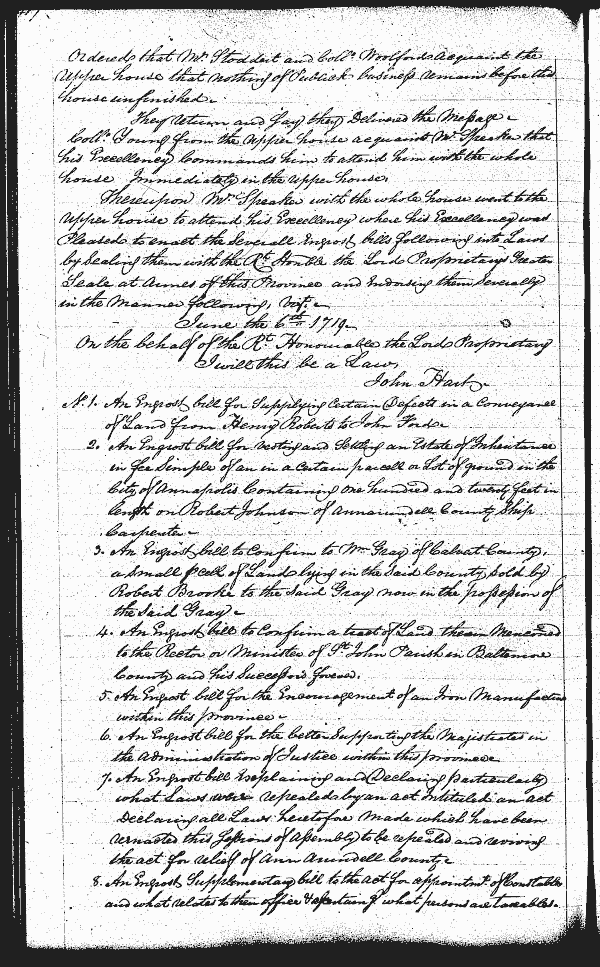 Ordered that Mr. Stoddert and Collo. Woolford acquaint the
Upper house that nothing of Publick business remains before this
house unfinished.
They return and say they Delivered the Message.
Collo. Young from the Upper house acquaints Mr. Speaker that
his Excellency Commands him to attend him with the whole
house Immediately in the upper house.
Thereupon Mr. Speaker with the whole house went to the
Upper house to attend his Excellency where his Excellency was
Pleased to enact the Severall Engrost bills following into Laws
by Sealing them with the Rt. Honble the Lord Proprietarys Greater
Seale at Armes of this Province and Endorsing them Severally
in the Manner following, vizt.
June the 6th 1719
On the behalf of the Rt. Honourable the Lord Proprietary
I will this be a Law,
John Hart
No. 1. An Engrost bill for Supplying Certain Defects in a Conveyance
of Land from Henry Roberts to John Forde
2. An Engrost bill for vesting and Setling an Estate of Inheritance
in fee Simple of an in a Certain parcell or Lot of ground in the
City of Annapolis Containing one hundred and twenty feet in
length on Robert Johnson of annarundell County Ship
Carpenter
3. An Engrost bill to Confirm to Wm. Gray of Calvert County,
a Small pcell of Land lying in the Said County Sold by
Robert Brooke to the Said Gray now in the possession of
the Said Gray
4. An Engrost bill to Confirm a tract of Land therein Menconed
to the Rector or Minister of St. John Parish in Baltemore
County and his Successors forever.
5. An Engrost bill for the Encouragement of an Iron Manufacture
within this province
6. An Engrost bill for the better Supporting the Majistrates in
the administration of Justice within this province
7. An Engrost bill Explaining and Declaring particularly
what Laws were repealed by an act Intituled an act
Declaring all Laws heretofore made which have been
reenacted this Sessions of assembly to be repealed and reviving
the act for relief of Ann Arundell County
8. An Engrost Supplementary bill to the act for appointmt. of Constables
and what relates to their office & what persons are taxables.